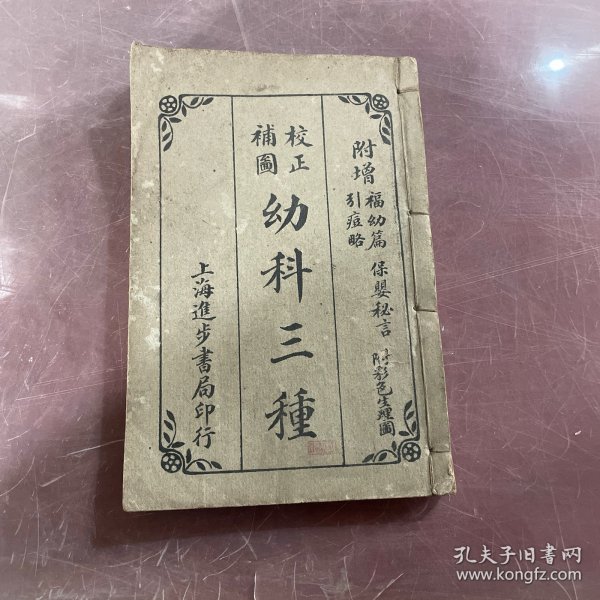 附增
福幼篇
引痘略
保嬰秘言
附彩色生理圖
校正
補圖
幼科三種
上海進步書局印行
孔夫子旧書网
www.kongfz.com